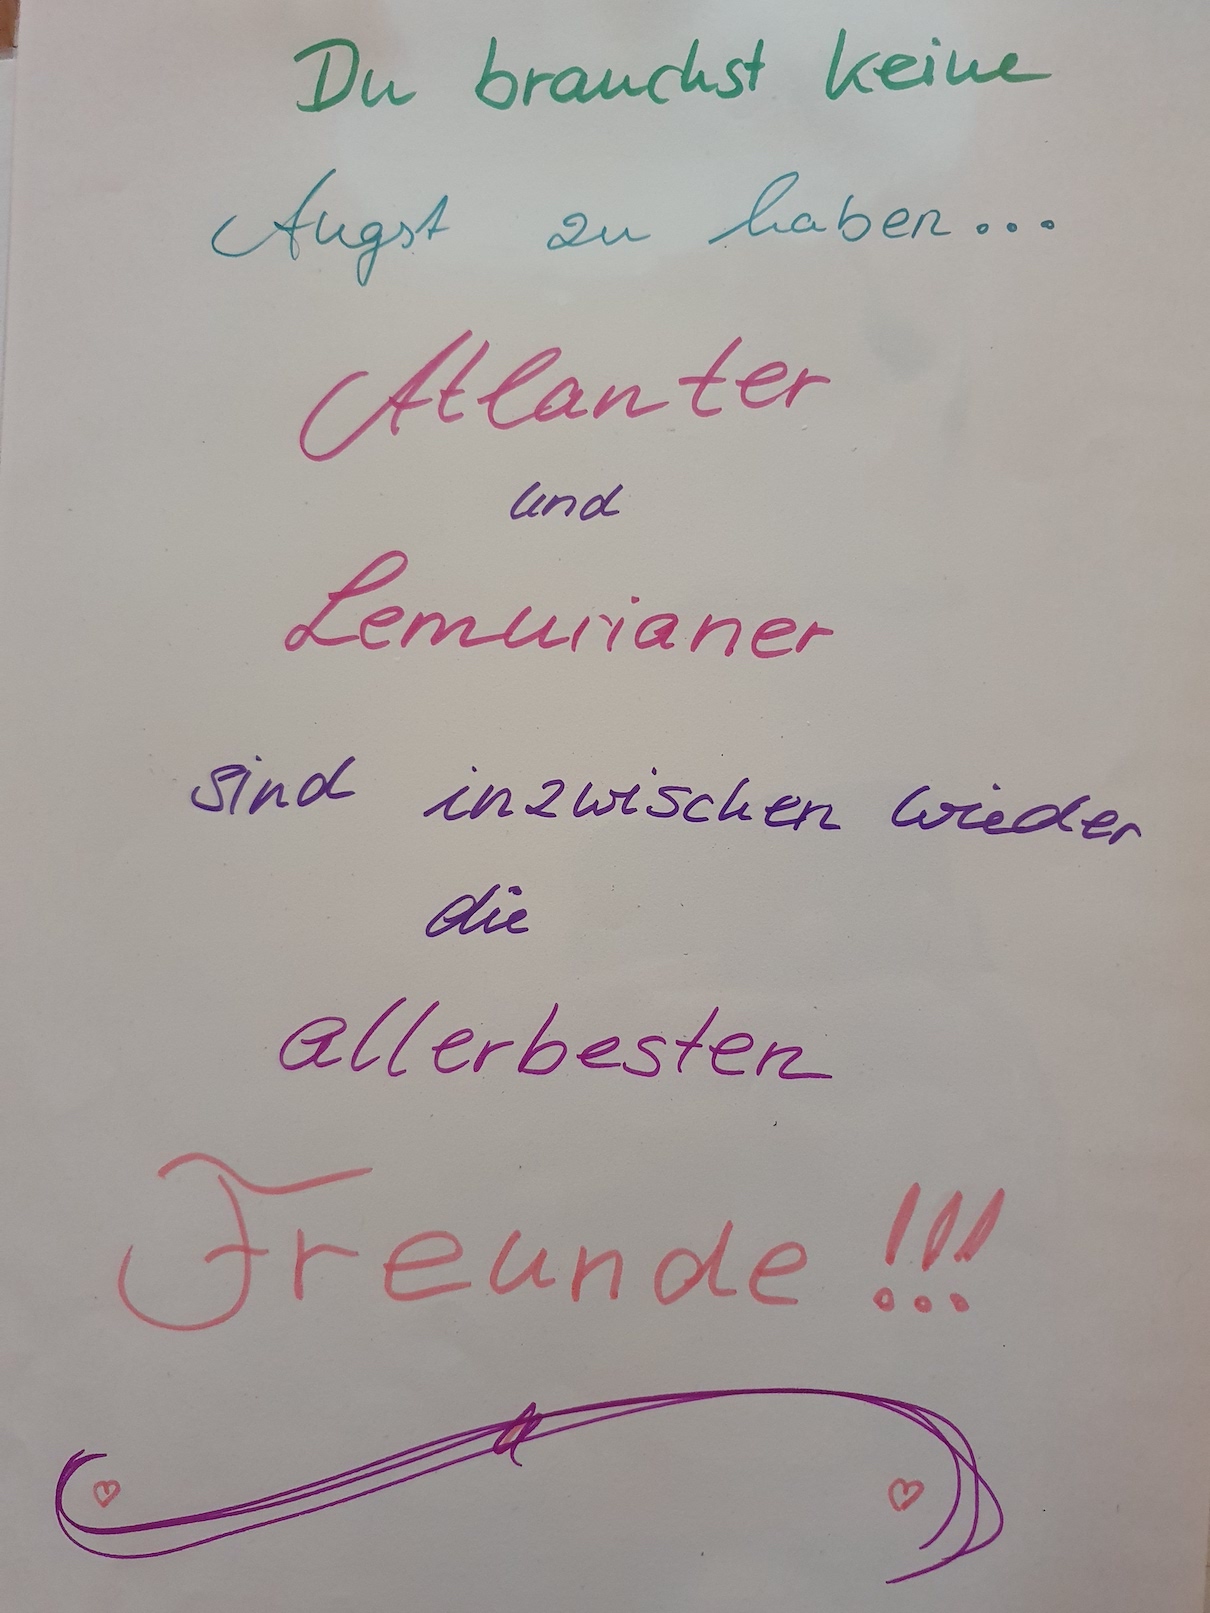 Du brauchst keine
Angst zu haben...
Atlanter
und
Lemurianer
sind inzwischen wieder
die
allerbesten
Freunde!!!